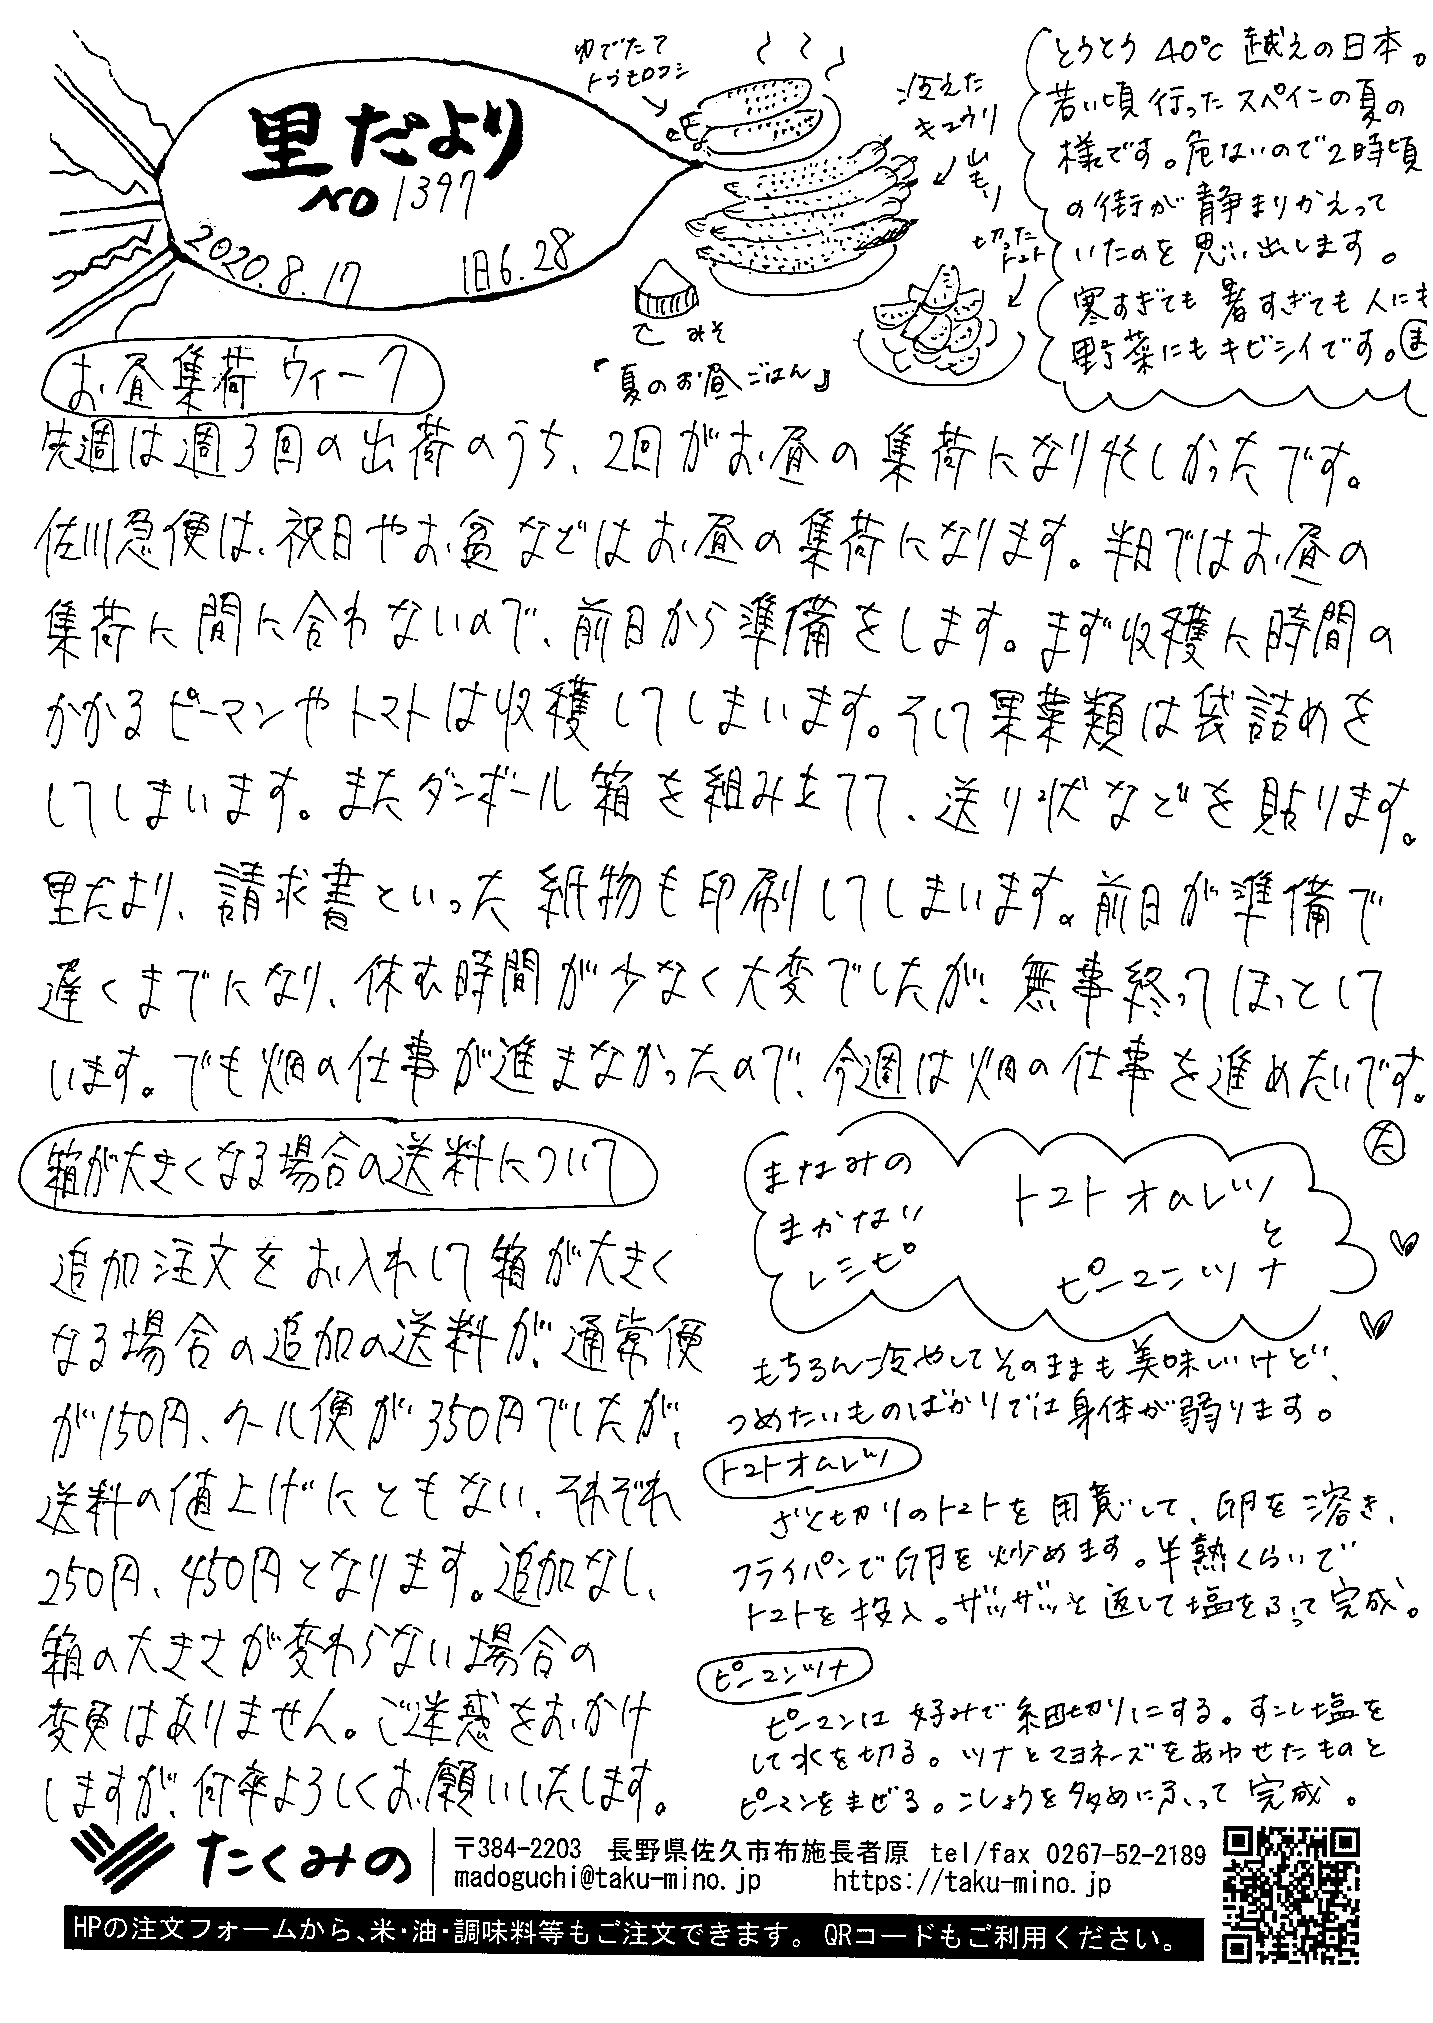 里だより
NO 1397
2020.8.17
旧6.28
ゆでたて
トウモロコシ
冷えた
キュウリ
山もり
切った
トマト
みそ
「夏のお昼ごはん」
とうとう 40℃ 越えの日本。
若い頃 行った スペインの夏の
様です。危ないので2時頃
の街が 静まりかえって
いたのを 思い出します。
寒すぎても 暑すぎても 人にも
野菜にも キビシイです。ま
お昼集荷ウィーク
先週は週3回の出荷のうち、2回がお昼の集荷になり忙しかったです。
佐川急便は、祝日やお盆などはお昼の集荷になります。半日ではお昼の
集荷に間に合わないので、前日から準備をします。まず収穫に時間の
かかるピーマンやトマトは収穫してしまいます。そして果菜類は袋詰めを
してしまいます。またダンボール箱を組み立てて、送り状などを貼ります。
里だより、請求書といった紙物も印刷してしまいます。前日が準備で
遅くまでになり、休む時間が少なく大変でしたが、無事終ってほっとして
います。でも畑の仕事が進まなかったので、今週は畑の仕事を進めたいです。
た
箱が大きくなる場合の送料について
追加注文をお入れして箱が大きく
なる場合の追加の送料が、通常便
が150円、クール便が350円でしたが、
送料の値上げにともない、それぞれ
250円、450円となります。追加なし、
箱の大きさが変わらない場合の
変更はありません。ご迷惑をおかけ
しますが、何卒よろしくお願いいたします。
まなみの
まかない
レシピ
トマトオムレツ
と
ピーマンツナ
もちろん冷やしてそのままも美味しいけど、
つめたいものばかりでは身体が弱ります。
トマトオムレツ
ざく切りのトマトを用意して、卵を溶き、
フライパンで卵を炒めます。半熟くらいで
トマトを投入。ザッザッと返して塩をふって完成。
ピーマンツナ
ピーマンは好みで細切りにする。すこし塩を
して水を切る。ツナとマヨネーズをあわせたものと
ピーマンをまぜる。こしょうを多めにふって完成。
たくみの
〒384-2203 長野県佐久市布施長者原 tel/fax 0267-52-2189
madoguchi@taku-mino.jp https://taku-mino.jp
HPの注文フォームから、米・油・調味料等もご注文できます。QRコードもご利用ください。